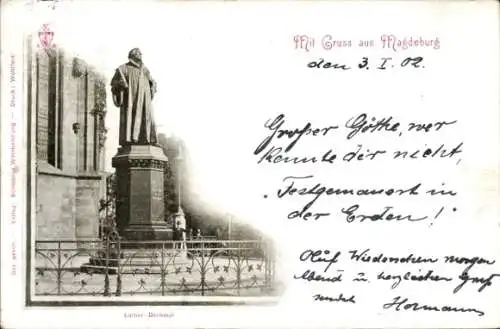 Mit Gruss aus Magdeburg
den 3. I. 02.
Großer Göthe, wer
kennte dir nicht,
"Festgemauert in
der Erden!"
Auf Wiedersehen morgen
Abend u. herzlichen Gruß
Hormanns
Luther-Denkmal